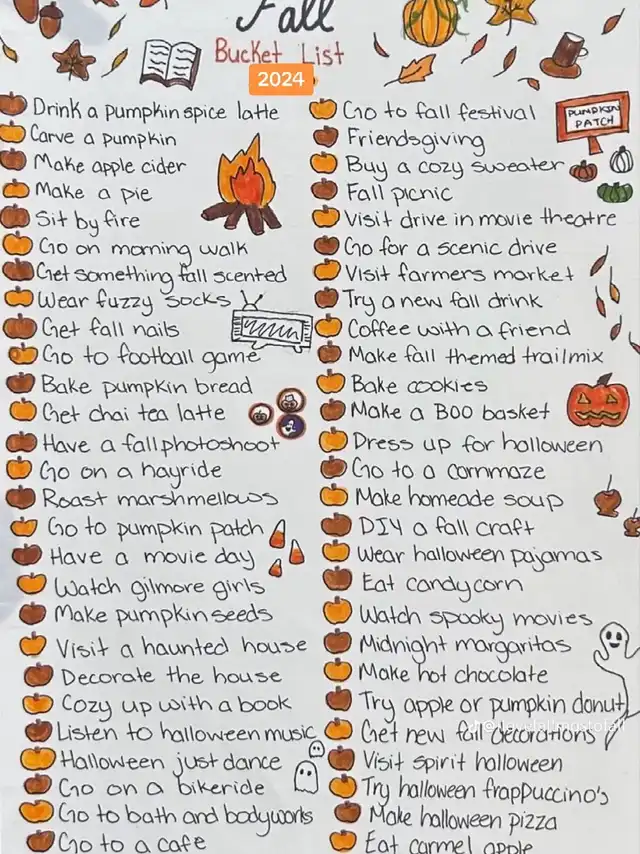 Fall
Bucket List
2024
PUMPKIN
PATCH
Drink a pumpkin spice latte
Carve a pumpkin
Make apple cider
Make a pie
Sit by fire
Go on morning walk
Get something fall scented
Wear fuzzy socks
Get fall nails
Go to football game
Bake pumpkin bread
Get chai tea latte
Have a fall photoshoot
Go on a hayride
Roast marshmellows
Go to pumpkin patch
Have a movie day
Watch gilmore girls
Make pumpkin seeds
Visit a haunted house
Decorate the house
Cozy up with a book
Listen to halloween music
Halloween just dance
Go on a bikeride
Go to bath and bodyworks
Go to a cafe
Go to fall festival
Friendsgiving
Buy a cozy sweater
Fall picnic
Visit drive in movie theatre
Go for a scenic drive
Visit farmers market
Try a new fall drink
Coffee with a friend
Make fall themed trailmix
Bake cookies
Make a BOO basket
Dress up for halloween
Go to a cornmaze
Make homeade soup
DIY a fall craft
Wear halloween pajamas
Eat candycorn
Watch spooky movies
Midnight margaritas
Make hot chocolate
Try apple or pumpkin donut
Get new fall decorations
Visit spirit halloween
Try halloween frappuccino's
Make halloween pizza
Eat carmel apple